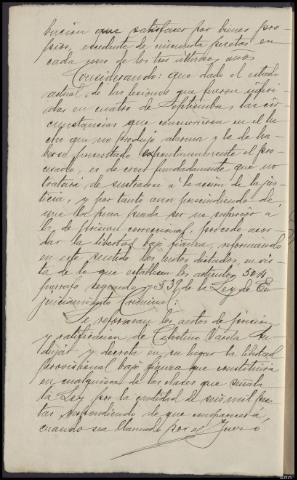 bución que satisface por bienes pro-
pios, excedente de cincuenta pesetas en
cada uno de los tres últimos años
Considerando: que dado el estado
actual de las heridas que fueron inferi-
das en catorce de Septiembre, las cir-
cunstancias que concurrieron en el he-
cho que no produjo alarma y la de ha-
berse presentado espontáneamente el pro-
cesado, es de creer fundadamente que no
tratará de sustraerse a la acción de la jus-
ticia, y por tanto aun prescindiendo de
que la pena pueda ser no superior a
la de prisión correccional, procede acor-
dar la libertad bajo fianza, reformando
en este sentido los autos dictados, en vis-
ta de lo que establecen los artículos 504
párrafo segundo y 529 de la Ley de En-
juiciamiento Criminal:
Se reforman los autos de prisión
y ratificación de Celestino Varela
y decreta en su lugar la libertad
provisional bajo fianza que constituirá
en cualquiera de las clases que señala
la Ley por la cantidad de seis mil pese-
tas respondiendo de que comparecerá
cuando sea llamado por el Juez o